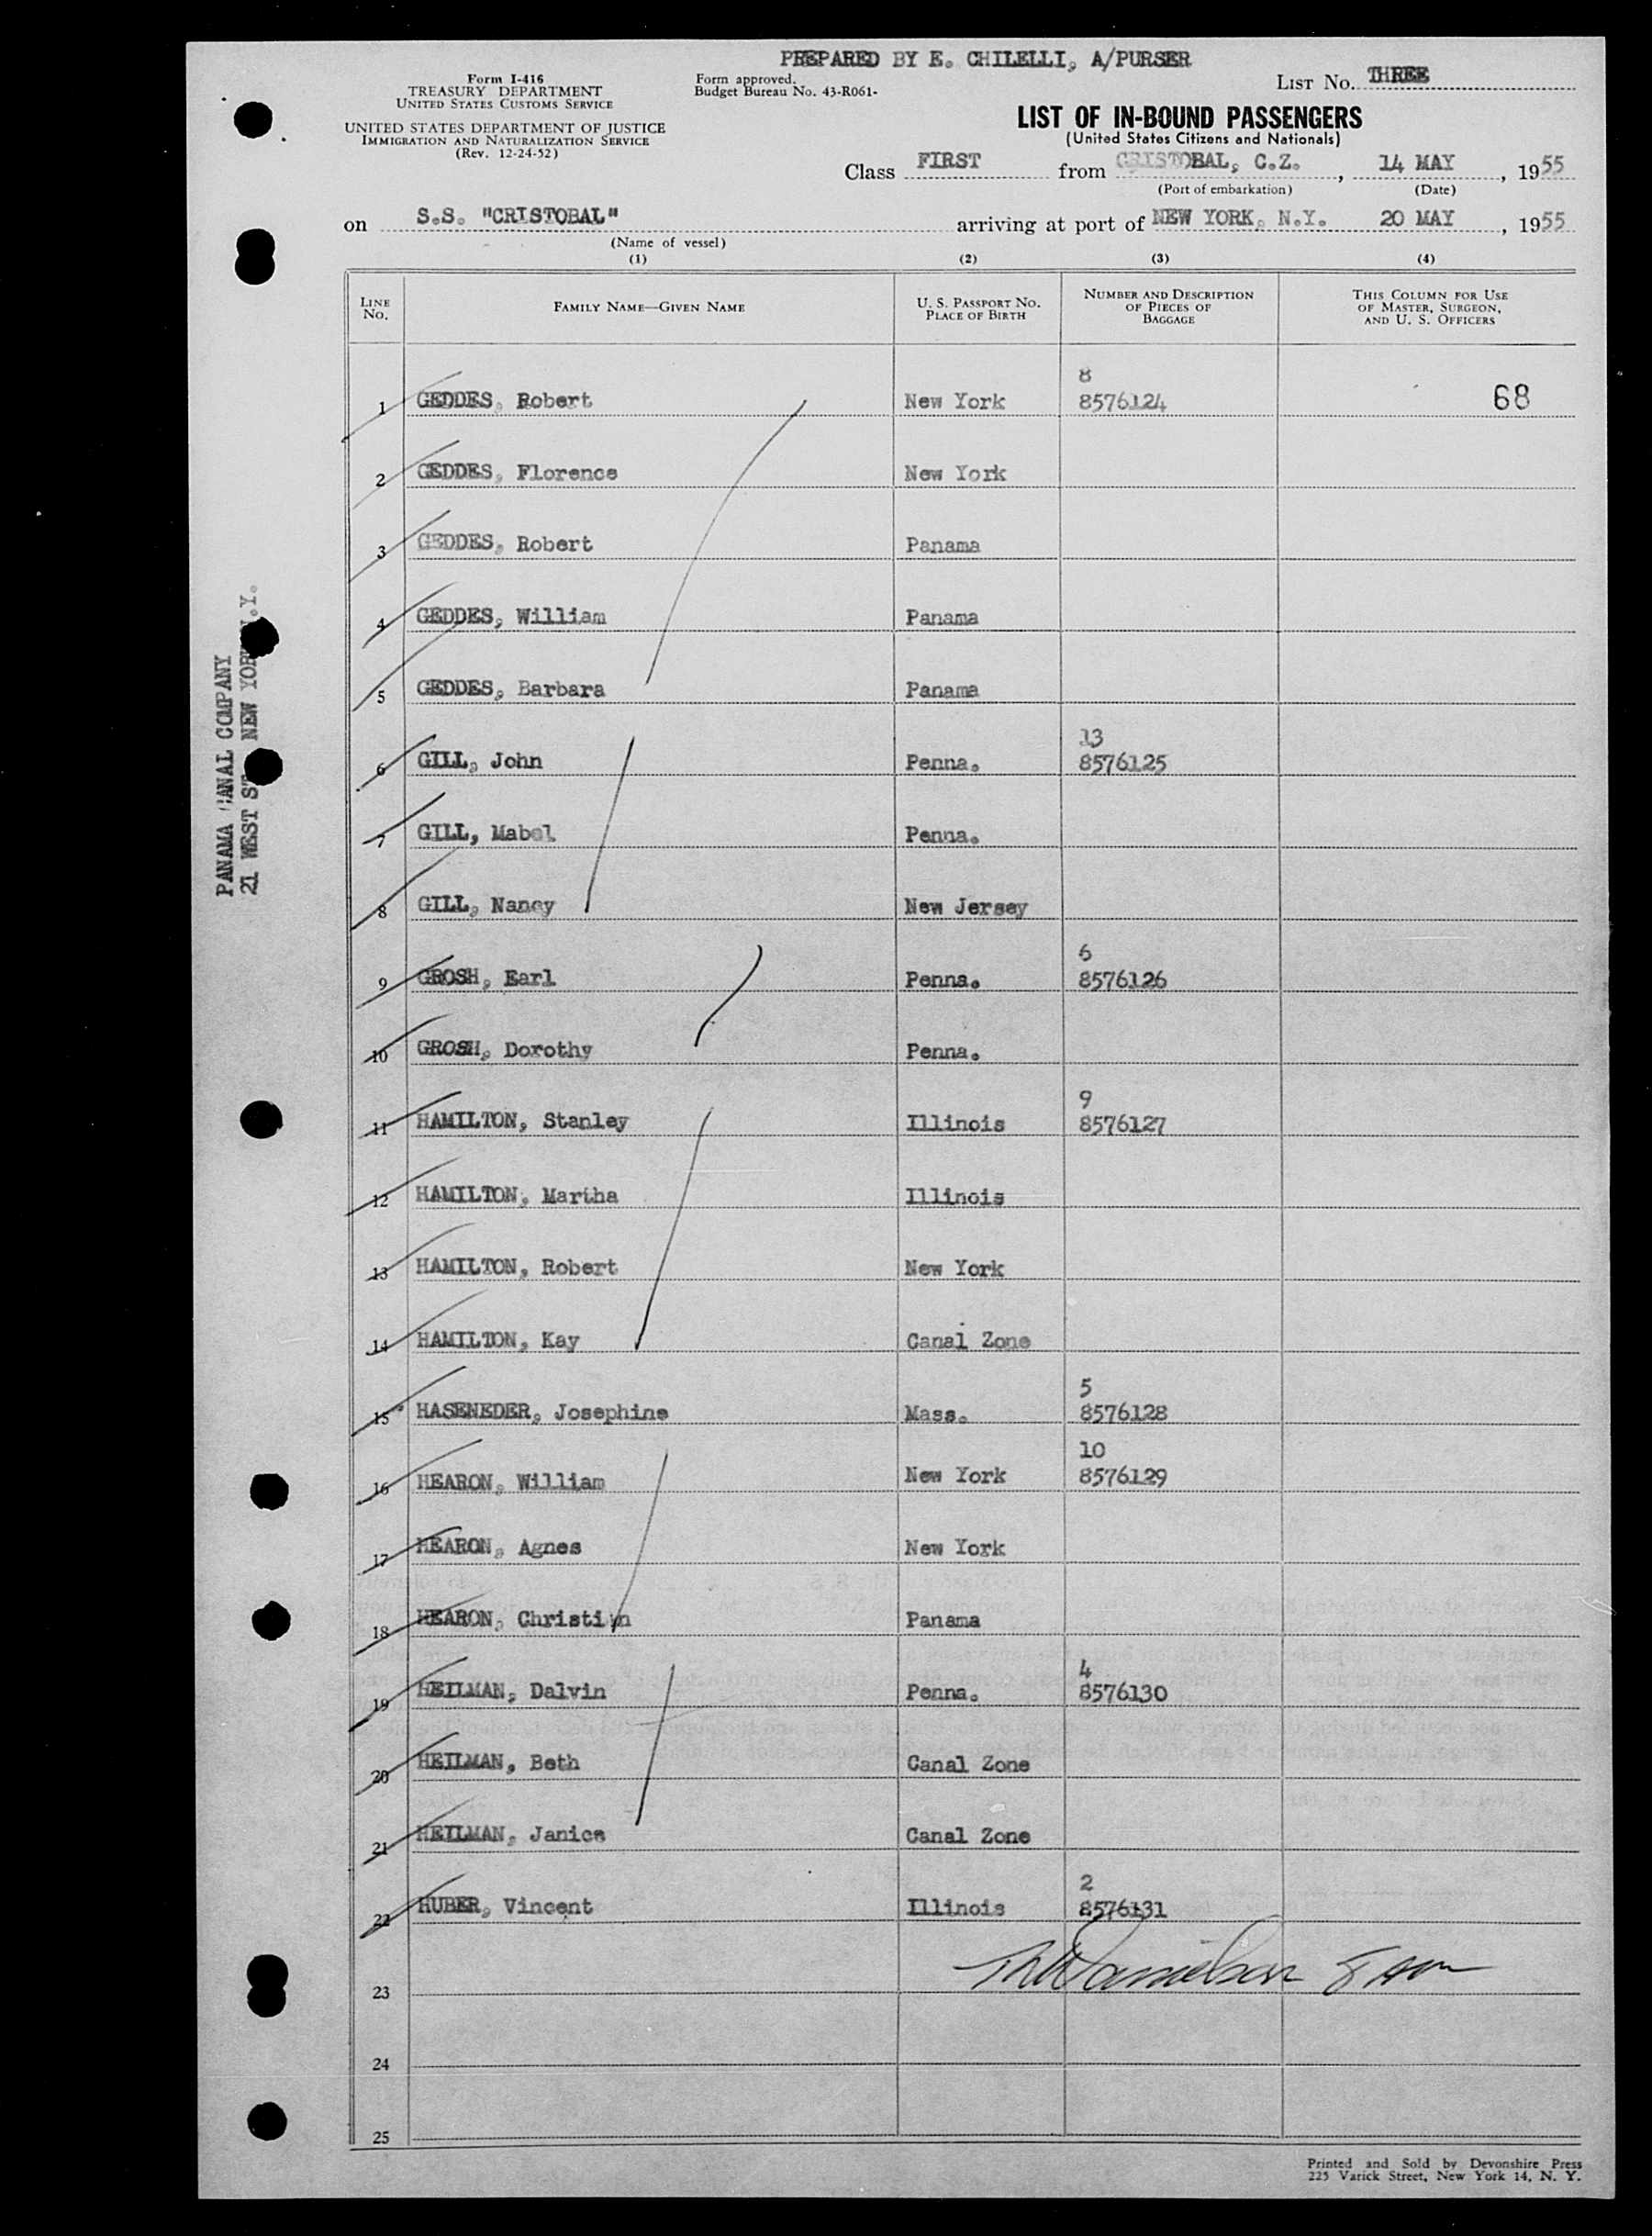 PREPARED BY E. CHILELLI, A/PURSER
Form I-416
TREASURY DEPARTMENT
UNITED STATES CUSTOMS SERVICE
UNITED STATES DEPARTMENT OF JUSTICE
IMMIGRATION AND NATURALIZATION SERVICE
(Rev. 12-24-52)
Form approved.
Budget Bureau No. 43-R061-
LIST No. THREE
LIST OF IN-BOUND PASSENGERS
(United States Citizens and Nationals)
Class FIRST from CRISTOBAL, C.Z., 14 MAY, 1955
(Port of embarkation) (Date)
on S.S. "CRISTOBAL" arriving at port of NEW YORK, N.Y. 20 MAY, 1955
(Name of vessel)
(1) (2) (3) (4)
LINE No. FAMILY NAME—GIVEN NAME U. S. PASSPORT NO. PLACE OF BIRTH NUMBER AND DESCRIPTION OF PIECES OF BAGGAGE THIS COLUMN FOR USE OF MASTER, SURGEON, AND U. S. OFFICERS
8
1 GEDDES, Robert New York 8576124 68
2 GEDDES, Florence New York
3 GEDDES, Robert Panama
4 GEDDES, William Panama
5 GEDDES, Barbara Panama
13
6 GILL, John Penna. 8576125
7 GILL, Mabel Penna.
8 GILL, Nancy New Jersey
6
9 GROSH, Earl Penna. 8576126
10 GROSH, Dorothy Penna.
9
11 HAMILTON, Stanley Illinois 8576127
12 HAMILTON, Martha Illinois
13 HAMILTON, Robert New York
14 HAMILTON, Kay Canal Zone
5
15 HASENEDER, Josephine Mass. 8576128
10
16 HEARON, William New York 8576129
17 HEARON, Agnes New York
18 HEARON, Christian Panama
4
19 HEILMAN, Dalvin Penna. 8576130
20 HEILMAN, Beth Canal Zone
21 HEILMAN, Janice Canal Zone
2
22 HUBER, Vincent Illinois 8576131
23
24
25
PANAMA CANAL COMPANY
21 WEST ST NEW YORK N.Y.
Printed and Sold by Devonshire Press
225 Varick Street, New York 14, N. Y.